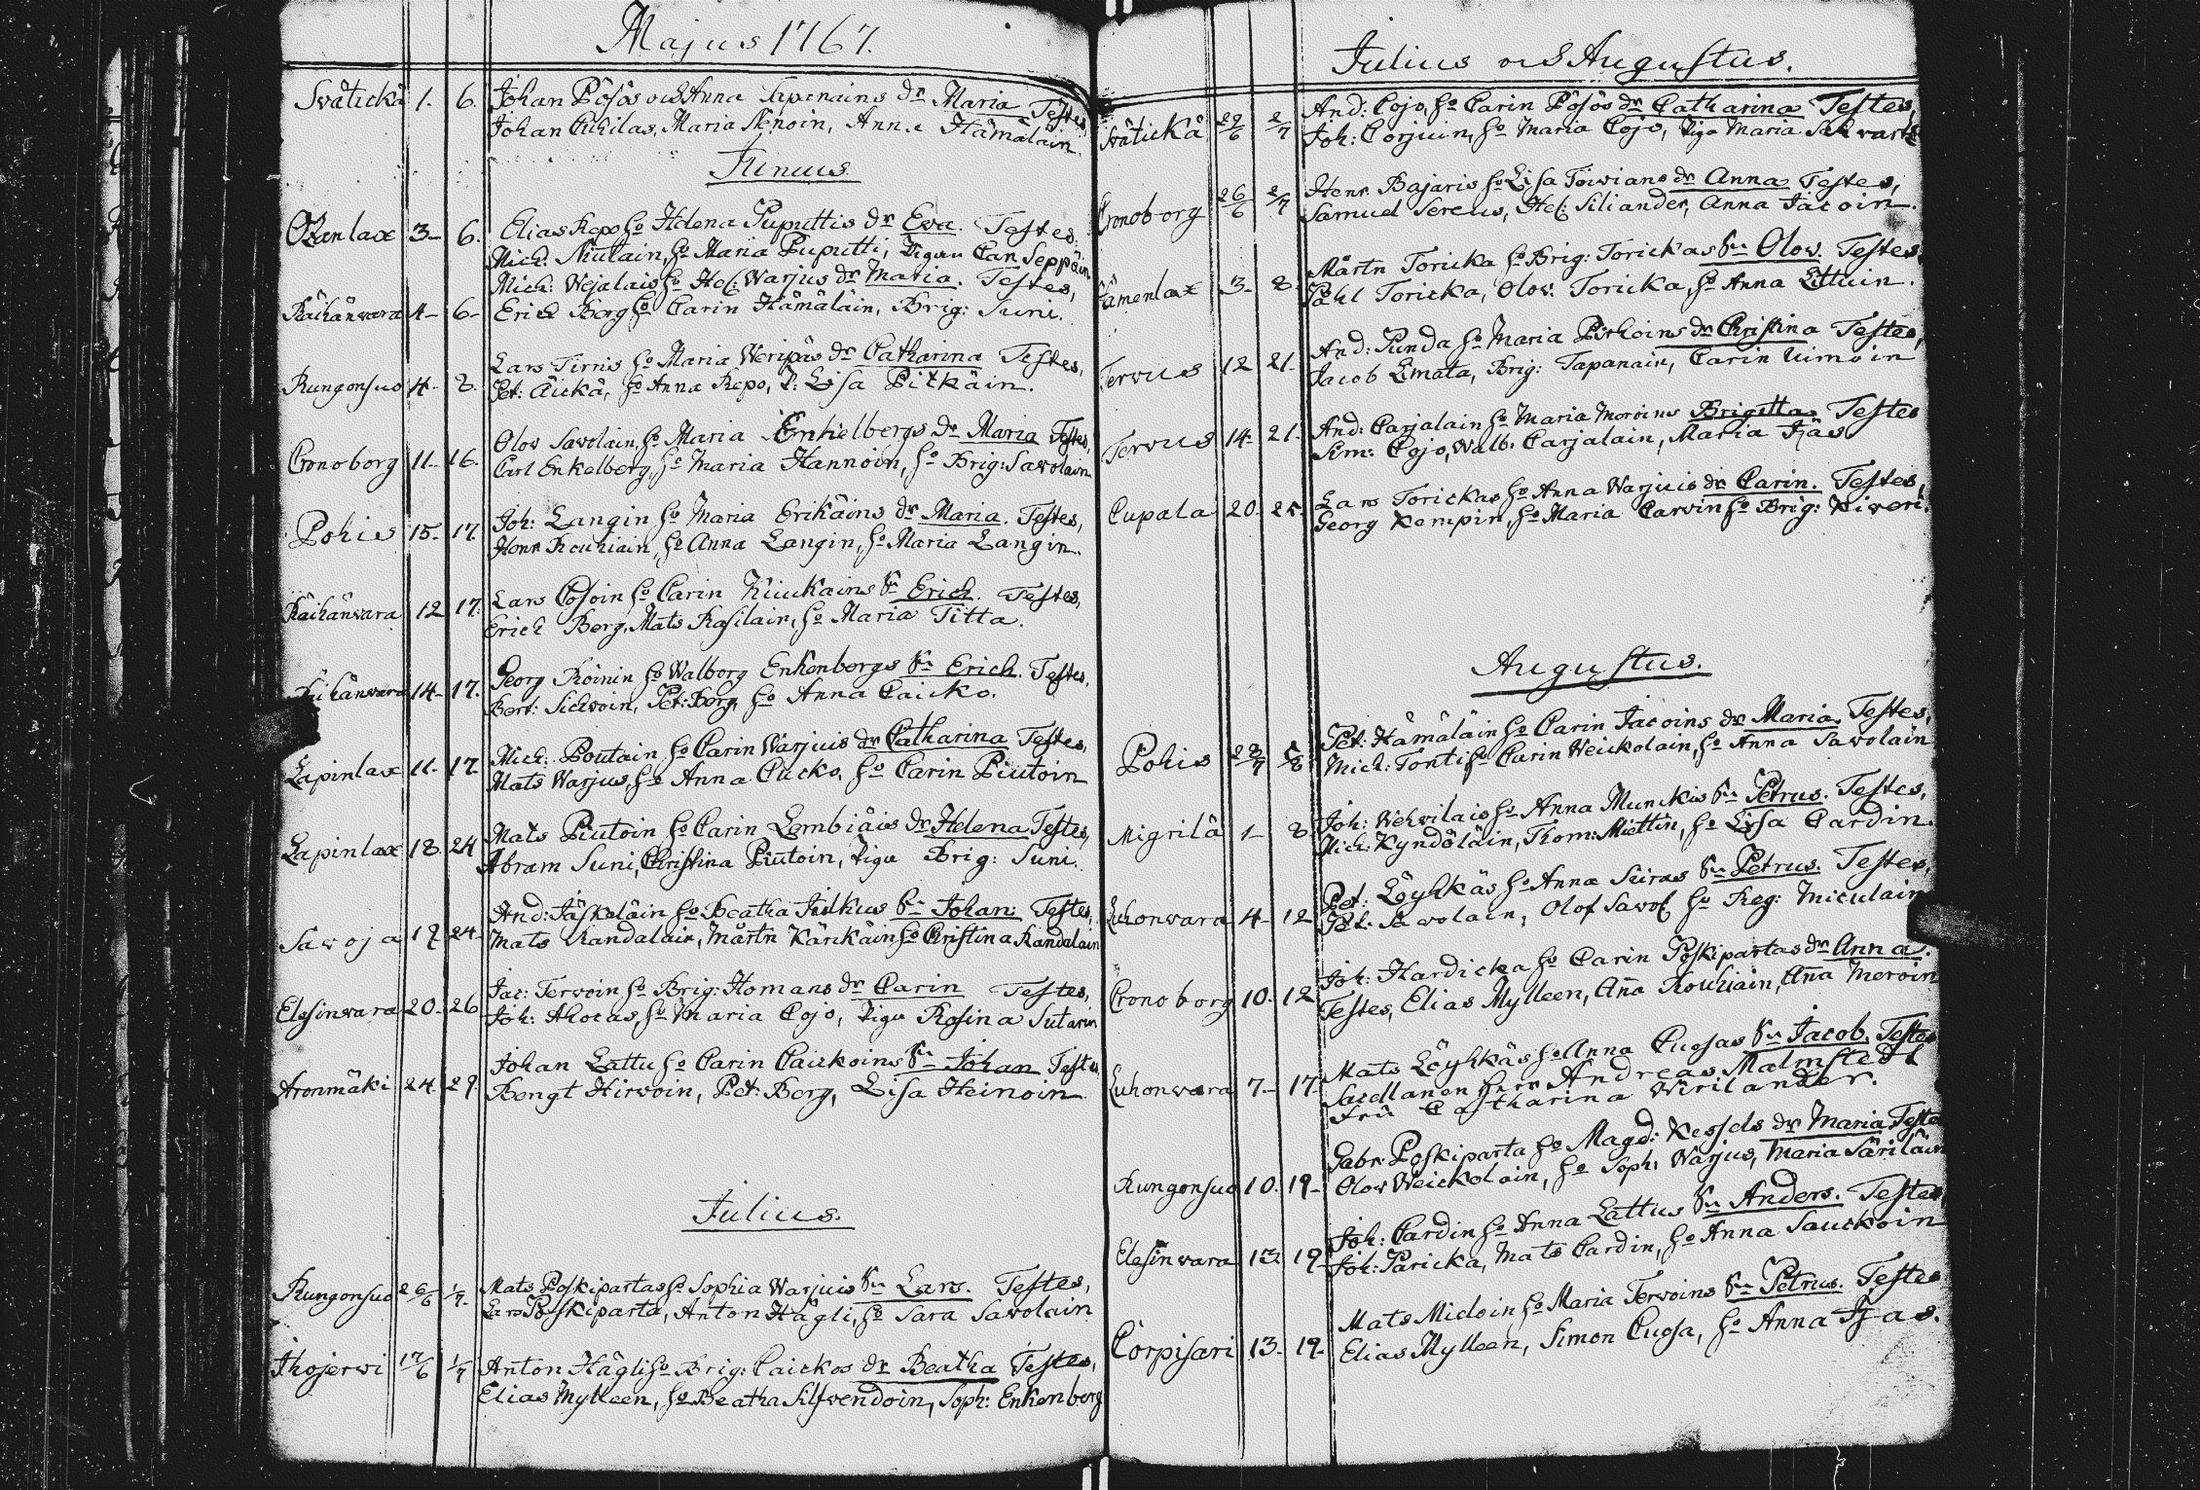 Majus 1767.
Svâtickâ 1. 6. Johan Pösös och Anna Tapenains dr Maria Testes
Johan Cuhilas, Maria Nenoin, Anna Hämäläin.
Junius.
Otzanlax 3 6. Elias Repo ho Helena Puputtis dr Eva. Testes,
Mich: Niulain, ho Maria Puputti, Pigan Car. Seppäin
Räihänvara 4 6 Mich: Wejalais ho Hel: Warjus dr Maria. Testes,
Erich Borg ho Carin Hämäläin, Brig: Suni.
Rungonsuo 4 8. Lars Tirnis ho Maria Weripäs dr Catharina Testes,
Pet: Äickä, ho Anna Repo, P: Lisa Pitkäin.
Cronoborg 11 16. Olov Savolain, ho Maria Enkelbergs dr Maria Testes,
Carl Enkelberg, ho Maria Hannoin, ho Brig: Savolain
Pohis 15 17. Joh: Langin ho Maria Erikäins dr Maria. Testes,
Henr. Rouhiain, ho Anna Langin, ho Maria Langin.
Räihänvara 12 17. Lars Cosoin ho Carin Kiuckains Sn Erich. Testes,
Erich Borg, Mats Rasilain, ho Maria Titta.
Räihänvara 14 17. Georg Röinin ho Walborg Enkenbergs Sn Erich. Testes,
Bert: Sichvoin, Pet: Borg, ho Anna Caicko.
Lapinlax 11 17. Mich: Poutain ho Carin Warjuis dr Catharina Testes,
Mats Warjus, ho Anna Cucko, ho Carin Piutoin
Lapinlax 18 24 Mats Piutoin ho Carin Lembiäis dr Helena Testes,
Abram Suni, Christina Piutoin, Piga Brig: Suni.
Savoja 19 24 And: Jäskeläin ho Beatha Julkus Sn Johan: Testes,
Mats Kandalain, Mårtn Kärckäin ho Christina Kandalain
Elesinvara 20 26 Jac: Tervoin ho Brig: Homans dr Carin Testes,
Joh: Ahocas, ho Maria Cojo, Piga Rosina Sutarin
Aronmäki 24. 29. Johan Lattu ho Carin Caickoins Sn Johan Testes
Bengt Hirvoin, Pet: Borg, Lisa Heinoin
Julius.
Rungonsuo 26/6 1/7 Mats Poskipartas ho Sophia Warjuis Sn Lars. Testes,
Lars Poskiparta, Anton Hägli, ho Sara Savolain
Ihojerwi 17/6 1/7 Anton Hägli ho Brig: Caickos dr Beatha Testes,
Elias Mylleen, ho Beatha Silfvendoin, Soph: Enkenberg
Julius och Augustus.
Svâtickâ 29/6 2/7 And: Cojo, ho Carin Pösös dr Catharina Testes,
Joh: Corjuin, ho Maria Cojo, Piga Maria Schvartz
Cronoborg 26/6 2/7 Henr. Bajaris ho Lisa Toivians dr Anna Testes,
Samuel Sereus, Hel: Siliander, Anna Jacoin.
Hämenlax 3 8. Mårtn Toricka ho Brig: Torickas Sn Olov. Testes,
Påhl Toricka, Olov. Toricka, ho Anna Littuin.
Tervus 12 21. And: Punda ho Maria Pirhoins dr Christina Testes,
Jacob Limata, Brig: Tapanain, Carin Uimoin
Tervus 14 21. And: Carjalain ho Maria Moroins Brigetta. Testes
Sim: Cojo, Walb. Carjalain, Maria Ijäs
Cupala 20. 25. Lars Torickas ho Anna Warjuis dr Carin. Testes,
Georg Kempin, ho Maria Carvin ho Brig: Kiveri.
Augustus.
Pohis 28/7 5/8 Pet: Hämäläin ho Carin Jacoins dr Maria. Testes,
Mich: Tonti ho Carin Weickolain, ho Anna Savolain
Migrilä 1 8. Joh: Wehvilais ho Anna Munckis Sn Petrus. Testes,
Mich: Kyndöläin, Thom: Miettin, ho Lisa Cardin.
Luhonvara 4 12 Pet: Löyhkäs ho Anna Seiras Sn Petrus. Testes,
Pet: Savolain, Olof Savol: ho Reg: Miculain
Cronoborg 10. 12 Joh: Hardicka ho Carin Poskipartas dr Anna.
Testes, Elias Mylleen, Aña Rouhiain, Aña Meroin
Luhonvara 7 17. Mats Löyhkäs ho Anna Cuosas Sn Jacob. Testes
Sacellanen herr Andreas Malmstedt
Fru Catharina Wirilander.
Rungonsuo 10. 19 Gabr. Poskiparta ho Magd: Kessels dr Maria Testes
Olov Weickolain, ho Soph: Warjus, Maria Säriläin
Elesinvara 13. 19 Joh: Cardin ho Anna Lattus Sn Anders. Testes
Joh: Paricka, Mats Cardin, ho Anna Sauckoin
Corpisari 13. 19 Mats Midoin ho Maria Tervoins Sn Petrus. Testes
Elias Mylleen, Simon Cuosa, ho Anna Ijas.